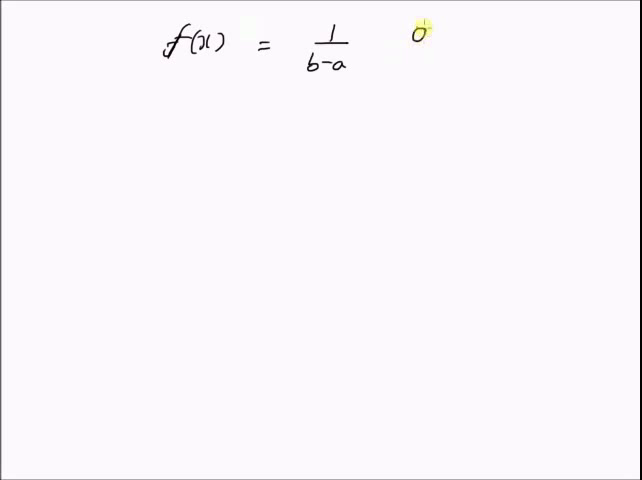 f(x) = 1/(b-a)